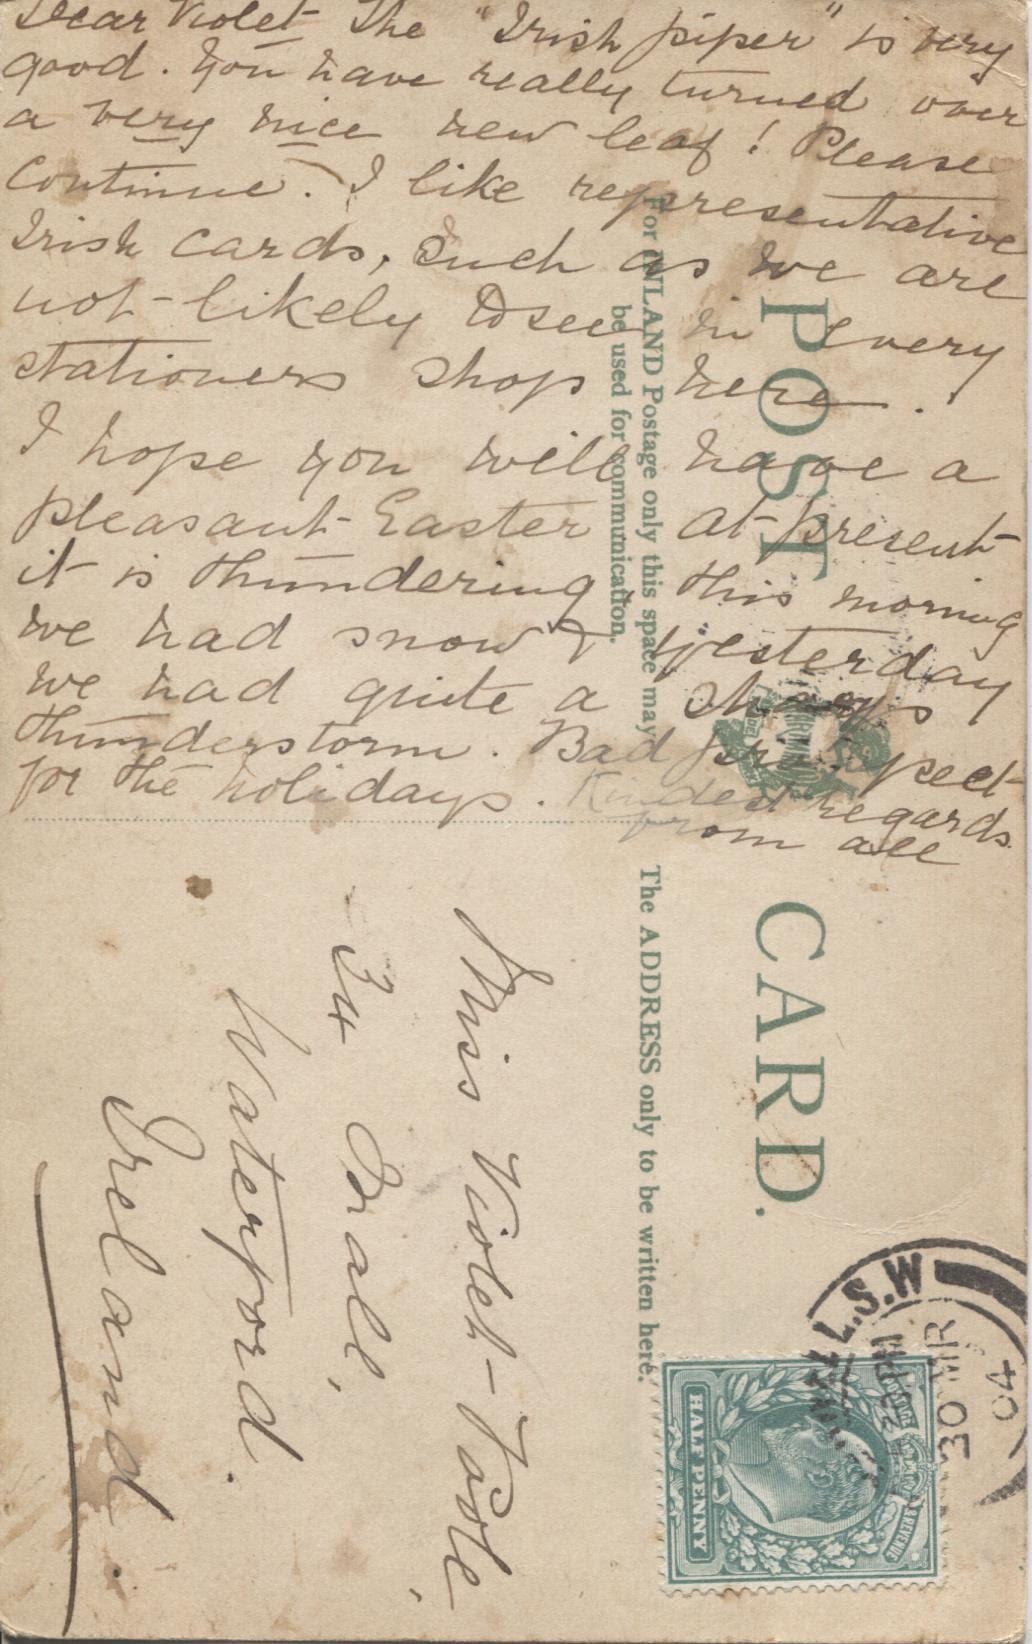 Dear Violet The "Irish piper" is very
good. You have really turned over
a very nice new leaf! Please
continue. I like representative
Irish cards, such as we are
not likely to see in every
stationers shop here.
I hope you will have a
pleasant Easter, at present
it is thundering, this morning
we had snow & yesterday
we had quite a sharp
thunderstorm. Bad prospect
for the holidays. Kindest regards
from all
POST CARD.
For INLAND Postage only this space may
be used for communication.
The ADDRESS only to be written here.
Miss Violet Poole,
34
Waterford.
Ireland.
L.S.W
30 MR
04
POSTAGE & REVENUE
HALF PENNY